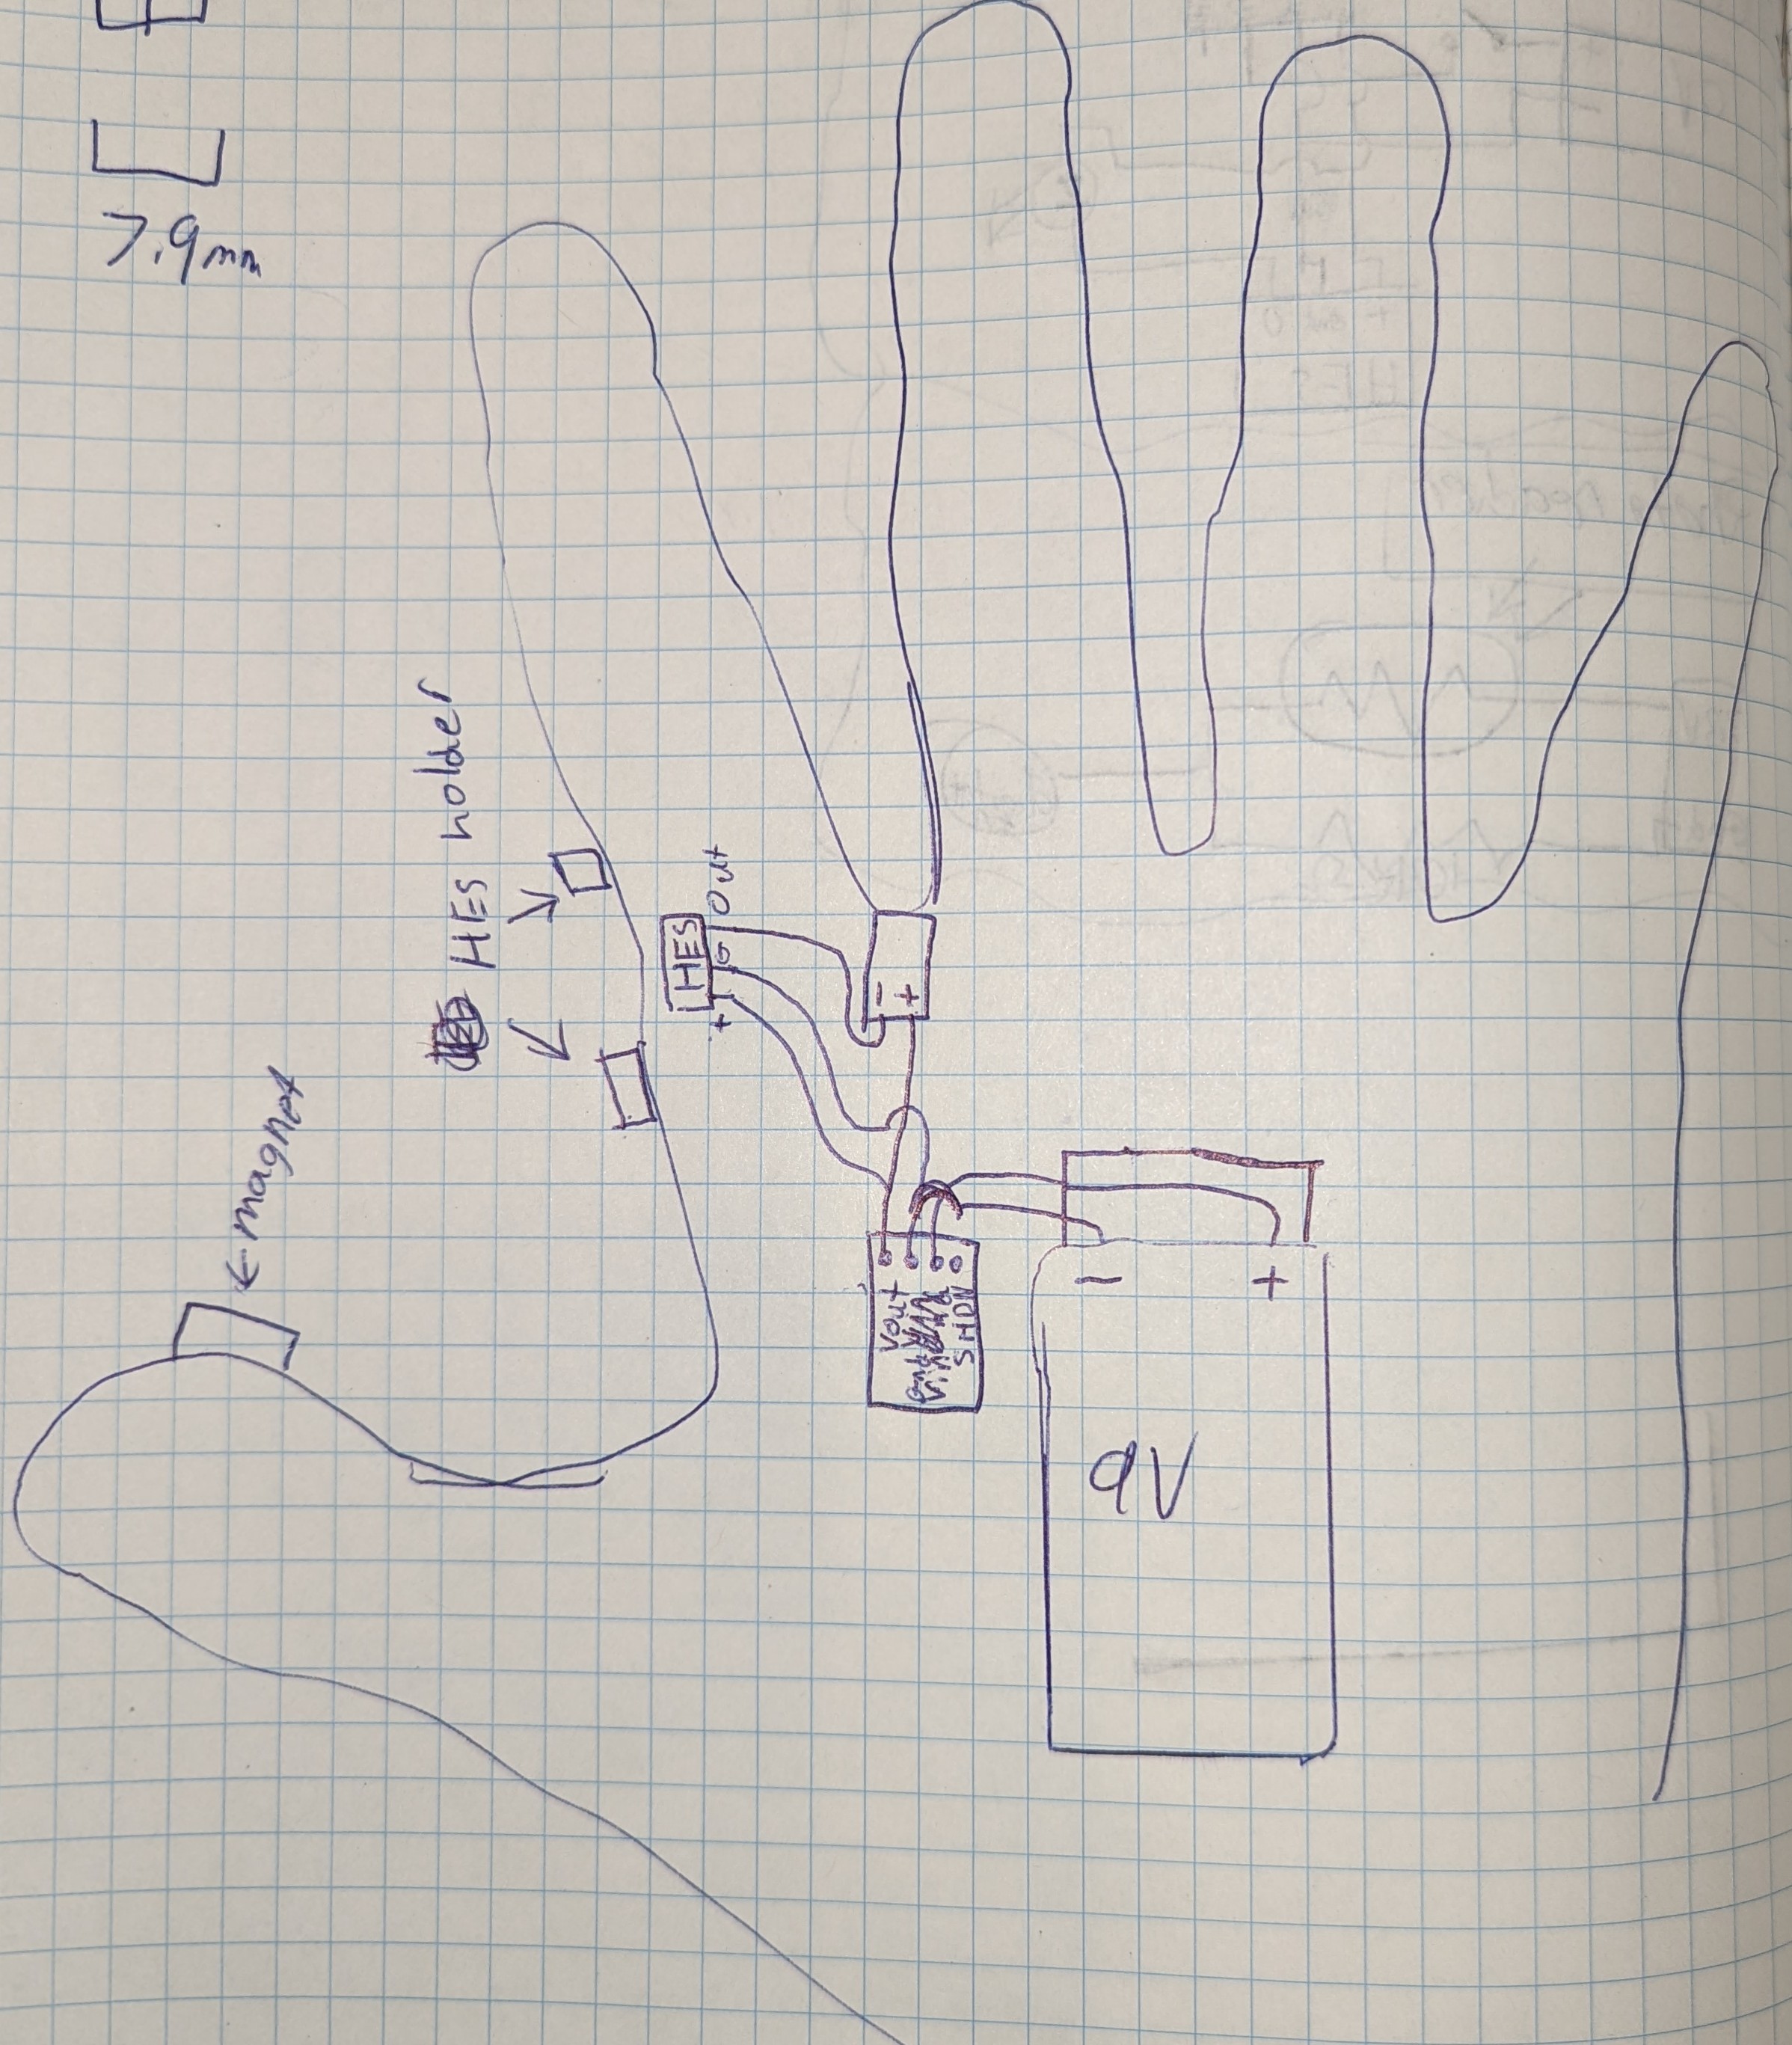 7.9mm
HES holder
←magnet
HES
Out
G
+
- +
Vout
SHDN
- +
9V